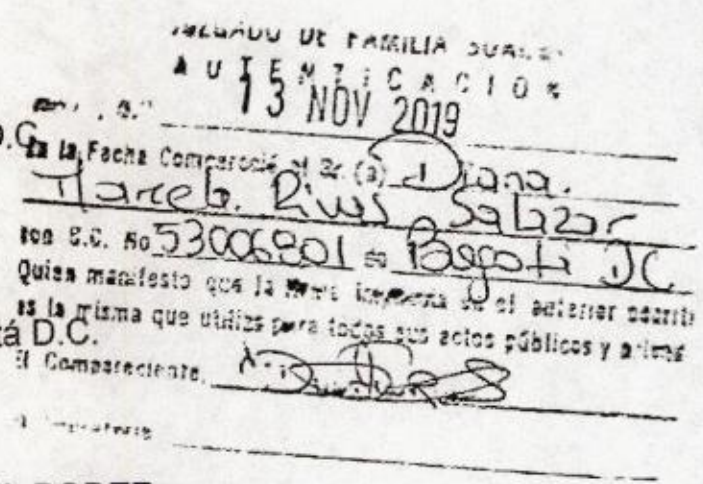 JUZGADO DE FAMILIA
AUTENTICACION
13 NOV 2019
En la Fecha Compareció el Sr. (a) Diana.
Marcela. Salazar
con C.C. No 53006801 de Bogotá DC
Quien manifesto que la firma impuesta en el anterior escrito
es la misma que utiliza para todos sus actos públicos y
tá D.C.
El Compareciente,